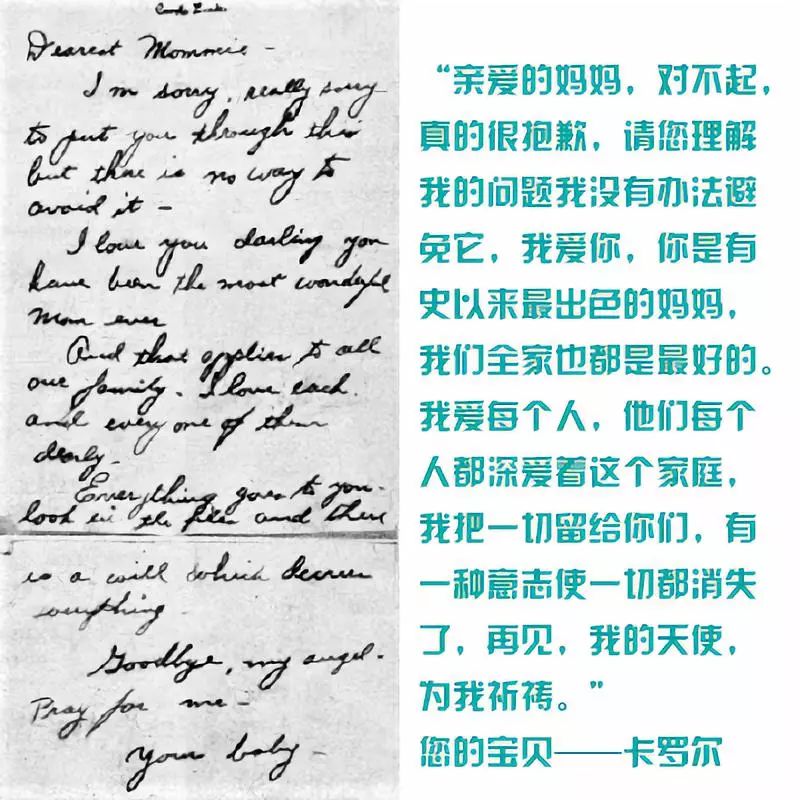 Dearest Mommie -
I'm sorry, really sorry
to put you through this
but there is no way to
avoid it -
I love you darling you
have been the most wonderful
mom ever
And that applies to all
our family. I love each
and every one of them
dearly.
Everything goes to you.
look in the files and there
is a will which decrees
everything.
Goodbye, my angel.
Pray for me -
Your baby -
“亲爱的妈妈，对不起，
真的很抱歉，请您理解
我的问题我没有办法避
免它，我爱你，你是有
史以来最出色的妈妈，
我们全家也都是最好的。
我爱每个人，他们每个
人都深爱着这个家庭，
我把一切留给你们，有
一种意志使一切都消失
了，再见，我的天使，
为我祈祷。”
您的宝贝——卡罗尔